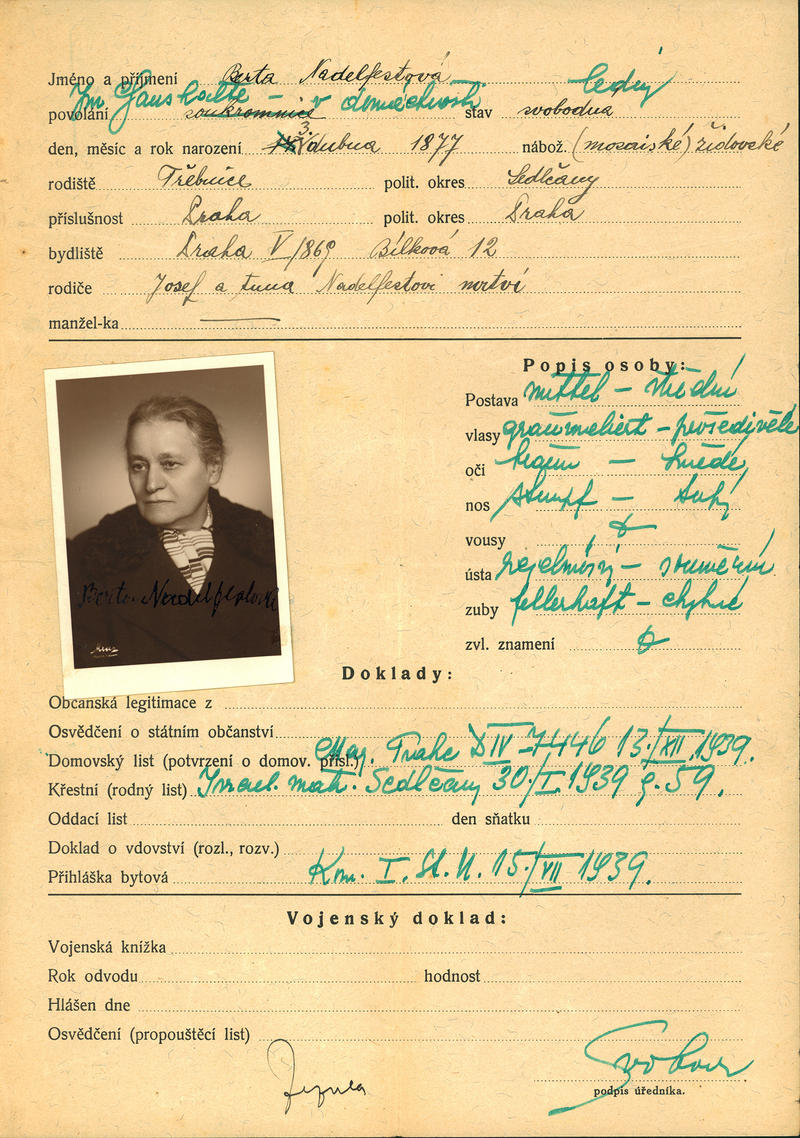 Jméno a příjmení Berta Nadelfestová
Im Haushalte – v domácnosti ledig
povolání soukromnice stav svobodna
3.
den, měsíc a rok narození dubna 1877 nábož. (mosaiské) židovské
rodiště Třebnice polit. okres Sedlčany
příslušnost Praha polit. okres Praha
bydliště Praha V/869 Bílková 12
rodiče Josef a Anna Nadelfestovi mrtví
manžel-ka
Popis osoby:
Postava mittel – střední
vlasy graumeliert – prošedivělé
oči braun – hnědé
nos stumpf – tupý
vousy
ústa regelmäs. – souměrná
zuby fellerhaft – chybné
zvl. znamení
Berta Nadelfestová
Doklady:
Občanská legitimace z
Osvědčení o státním občanství
Domovský list (potvrzení o domov. přísl.) Mag. Prahe D IV – 7446 13./XII. 1939.
Křestní (rodný list) Israel. mat. Sedlčany 30./I. 1939 č. 59.
Oddací list den sňatku
Doklad o vdovství (rozl., rozv.)
Přihláška bytová Kom. I. St. M. 15./VII 1939.
Vojenský doklad:
Vojenská knížka
Rok odvodu hodnost
Hlášen dne
Osvědčení (propouštěcí list)
podpis úředníka.